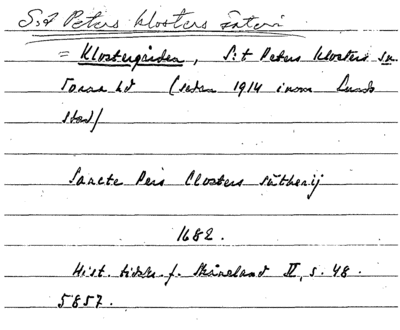 S:t Peters klosters säteri
= Klostergården, S:t Peters klosters sn.
Torna hd (sedan 1914 inom Lunds
stad)
Sancte Pers Closters sätherij
1682.
Hist. tidskr. f. Skåneland II, s. 48.
5857.